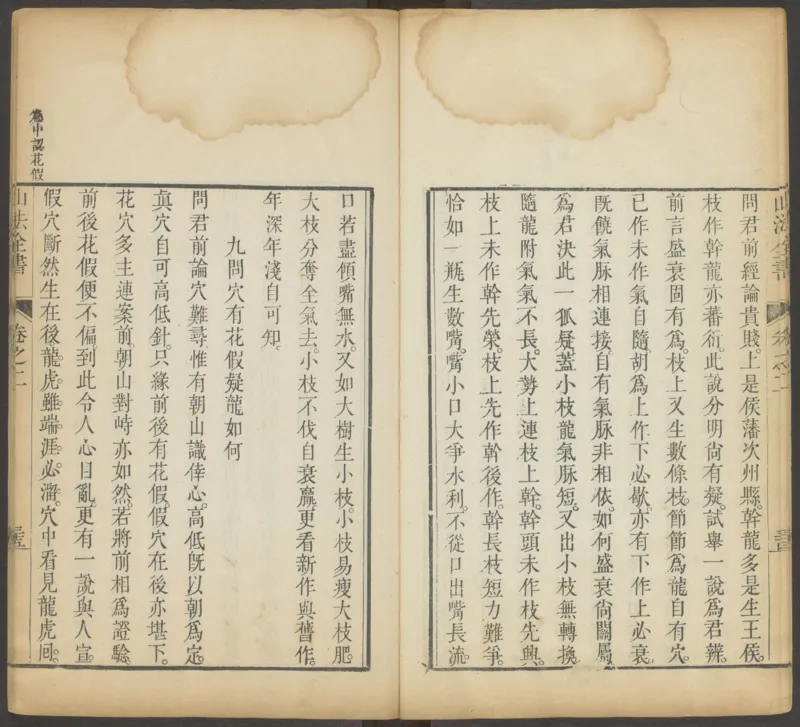 問君前經論貴賤。上是侯藩次州縣。幹龍多是生王侯。
枝作幹龍亦蕃衍。此說分明尙有疑。試舉一說爲君辨。
前言盛衰固有爲。枝上又生數條枝。節節爲龍自有穴。
已作未作氣自隨。胡爲上作下必歇。亦有下作上必衰。
旣饒氣脉相連接。自有氣脉非相依。如何盛衰尙關屬。
爲君決此一狐疑。蓋小枝龍氣脉短。又出小枝無轉換。
隨龍附氣氣不長。大勢上連枝上幹。幹頭未作枝先興。
枝上未作幹先榮。枝上先作幹後作。幹長枝短力難爭。
恰如一瓶生數嘴。嘴小口大爭水利。不從口出嘴長流。
山法全書
卷之二
口若盡傾嘴無水。又如大樹生小枝。小枝易瘦大枝肥。
大枝分奪全氣去。小枝不伐自衰羸。更看新作與舊作。
年深年淺自可知。
九問穴有花假疑龍如何
問君前論穴難尋。惟有朝山識倖心。高低旣以朝爲定。
眞穴自可高低針。只緣前後有花假。假穴在後亦堪下。
花穴多主連案前。朝山對峙亦如然。若將前相爲證驗。
前後花假便不偏。到此令人心目亂。更有一說與人宣。
假穴斷然生在後。龍虎雖端涯必溜。穴中看見龍虎回。
山法全書
卷之二
中認花假